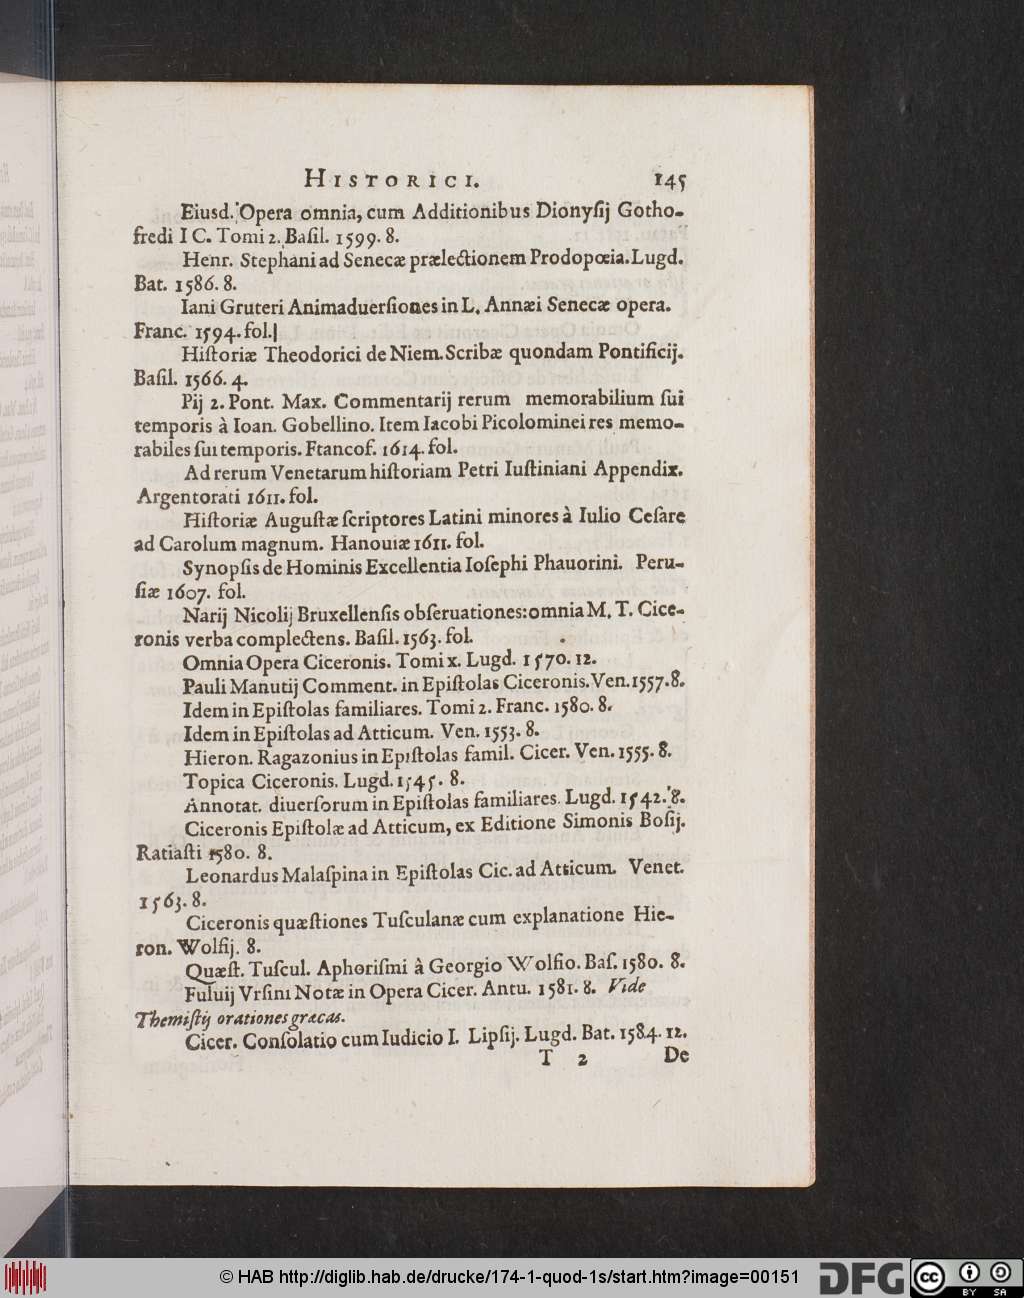 HISTORICI. 145
Eiusd. Opera omnia, cum Additionibus Dionyſij Gotho-
fredi I C. Tomi 2. Baſil. 1599. 8.
Henr. Stephani ad Senecæ prælectionem Prodopœia. Lugd.
Bat. 1586. 8.
Iani Gruteri Animaduerſiones in L. Annæi Senecæ opera.
Franc. 1594. fol.
Hiſtoriæ Theodorici de Niem. Scribæ quondam Pontificij.
Baſil. 1566. 4.
Pij 2. Pont. Max. Commentarij rerum memorabilium ſui
temporis à Ioan. Gobellino. Item Iacobi Picolominei res memo-
rabiles ſui temporis. Francof. 1614. fol.
Ad rerum Venetarum hiſtoriam Petri Iuſtiniani Appendix.
Argentorati 1611. fol.
Hiſtoriæ Auguſtæ ſcriptores Latini minores à Iulio Ceſare
ad Carolum magnum. Hanouiæ 1611. fol.
Synopſis de Hominis Excellentia Ioſephi Phauorini. Peru-
ſiæ 1607. fol.
Narij Nicolij Bruxellenſis obſeruationes: omnia M. T. Cice-
ronis verba complectens. Baſil. 1563. fol.
Omnia Opera Ciceronis. Tomi x. Lugd. 1570. 12.
Pauli Manutij Comment. in Epiſtolas Ciceronis. Ven. 1557. 8.
Idem in Epiſtolas familiares. Tomi 2. Franc. 1580. 8.
Idem in Epiſtolas ad Atticum. Ven. 1553. 8.
Hieron. Ragazonius in Epiſtolas famil. Cicer. Ven. 1555. 8.
Topica Ciceronis. Lugd. 1545. 8.
Annotat. diuerſorum in Epiſtolas familiares. Lugd. 1542. 8.
Ciceronis Epiſtolæ ad Atticum, ex Editione Simonis Boſij.
Ratiaſti 1580. 8.
Leonardus Malaſpina in Epiſtolas Cic. ad Atticum. Venet.
1563. 8.
Ciceronis quæſtiones Tuſculanæ cum explanatione Hie-
ron. Wolfij. 8.
Quæſt. Tuſcul. Aphoriſmi à Georgio Wolfio. Baſ. 1580. 8.
Fuluij Vrſini Notæ in Opera Cicer. Antu. 1581. 8. Vide
Themiſtij orationes græcas.
Cicer. Conſolatio cum Iudicio I. Lipſij. Lugd. Bat. 1584. 12.
T 2 De
© HAB http://diglib.hab.de/drucke/174-1-quod-1s/start.htm?image=00151
DFG
cc BY SA